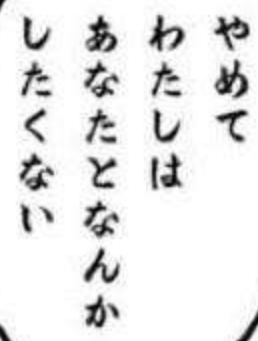 やめて
わたしは
あなたとなんか
したくない